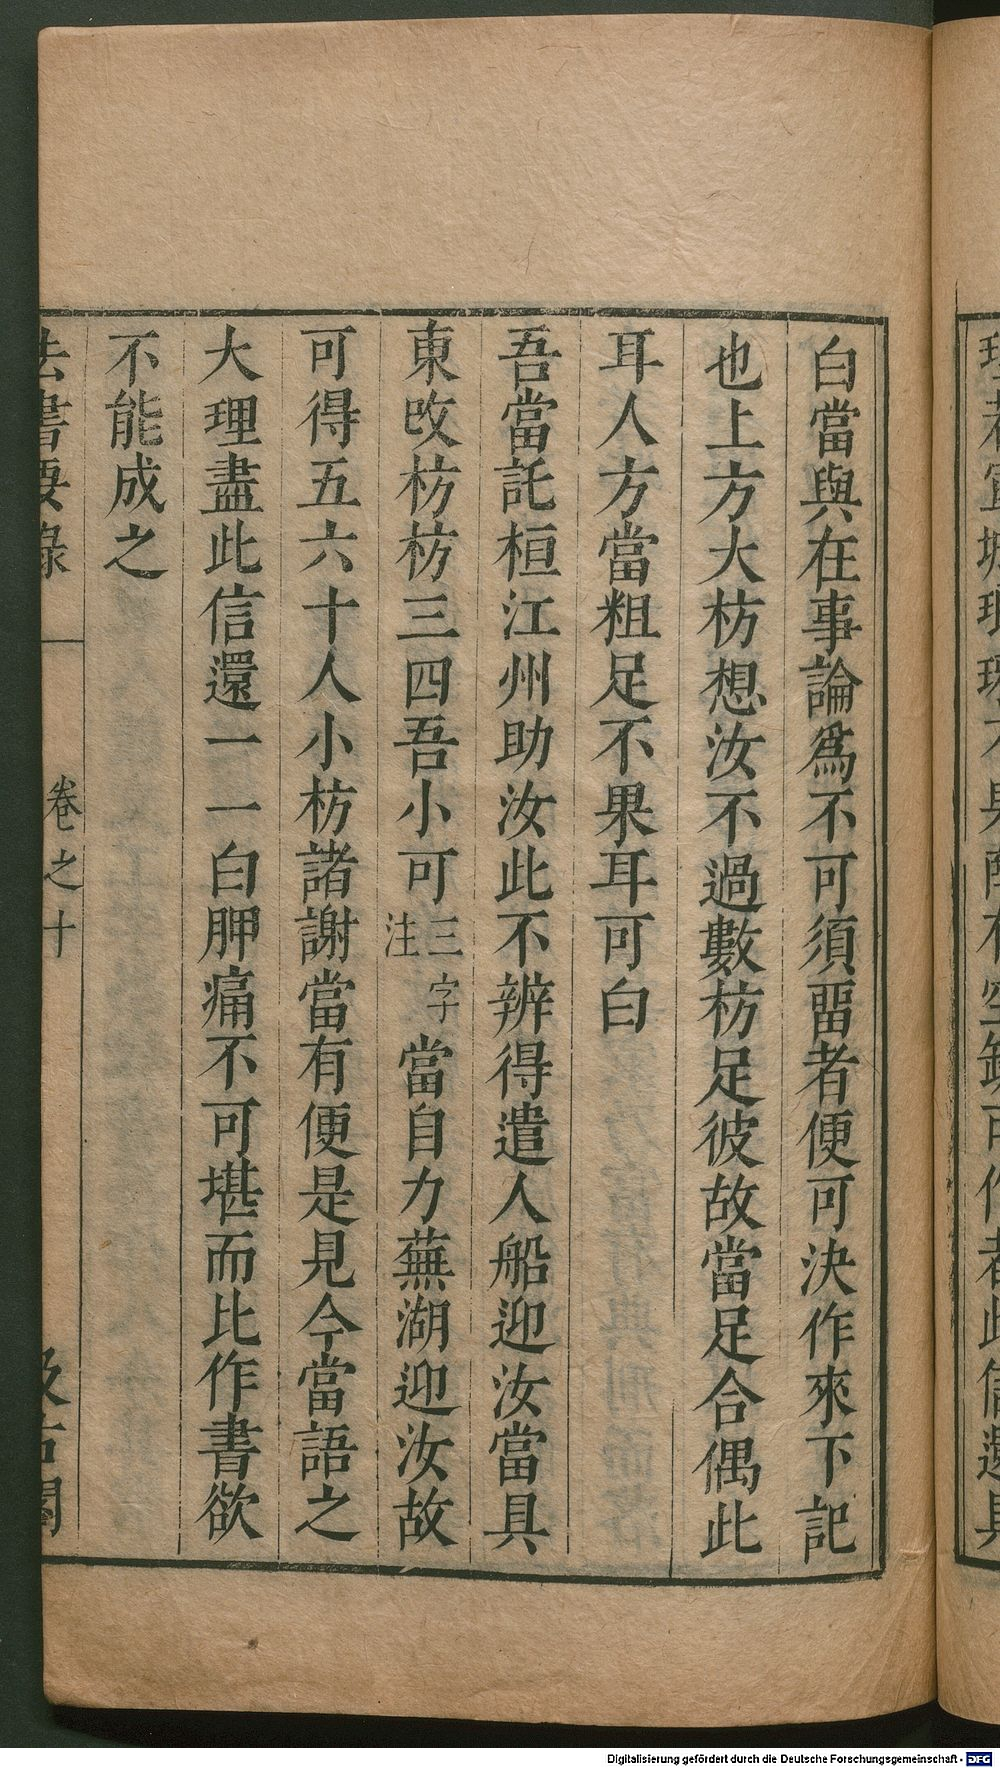 白當與在事論爲不可須畱者便可決作來下記
也上方大枋想汝不過數枋足彼故當足合偶此
耳人方當粗足不果耳可白
吾當託桓江州助汝此不辨得遣人船迎汝當具
東改枋枋三四吾小可三字注當自力蕪湖迎汝故
可得五六十人小枋諸謝當有便是見今當語之
大理盡此信還一一白胛痛不可堪而比作書欲
不能成之
法書要錄 卷之十 汲古閣
Digitalisierung gefördert durch die Deutsche Forschungsgemeinschaft - DFG